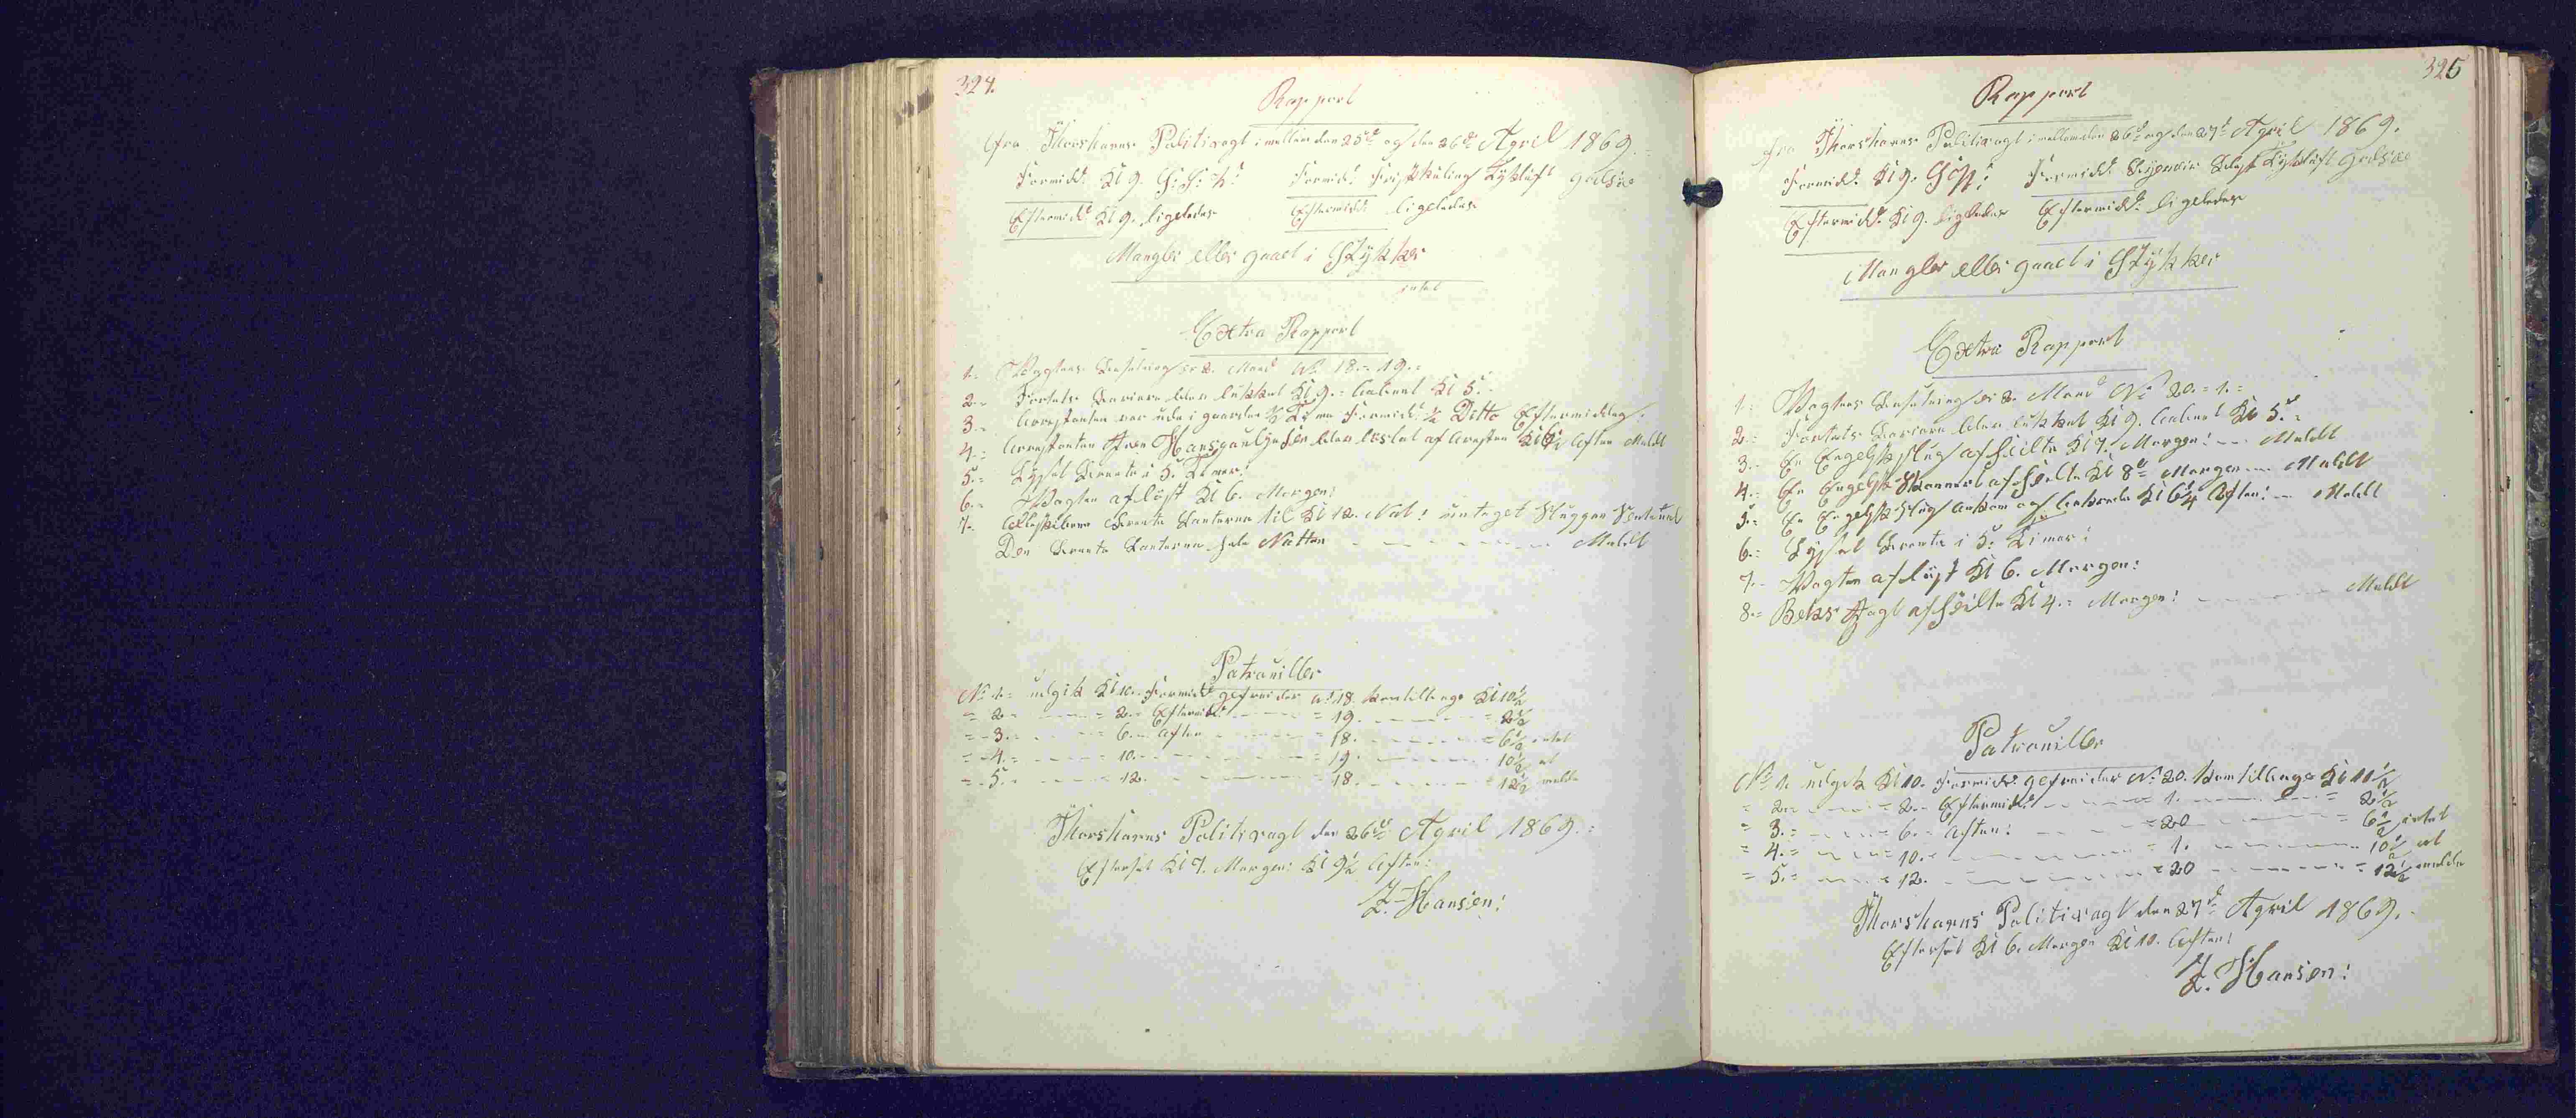 324.
Rapport
fra Thorshavns Politivagt imellem den 25de og den 26de April 1869.
Formidd: Kl 9. S:S:V: Formidd: Frisk kuling Tyk luft
Eftermidd: Kl 9. ligeledes Eftermidd: ligeledes
Mangler eller gaaet i Stykker
intet
Extra Rapport
1. Vagtens Besætning er 2. Mand No 18.=19.=
2. Fortets Barriere blev lukket Kl 9.= aabnet Kl 5.
3. Arrestanten var ude i gaarden ½ Time Formidd: ½ Ditto Eftermiddag.
4. Arrestanten Hanspauljensen blev løslat af Aresten Kl 6½ Aften Meldt
5. Lyset Brente i 5. Timer:
6. Vagten afløst Kl 6. Morgen:
7. Alle Skibene Brente Lanterne til Kl 12. Nat: untaget Sluggen
Den Brente Lanterne hele Natten Meldt
Patrouiller
No 1.= udgik Kl 10. Formidd: gefreider No 18. kom tilbage Kl 10½
= 2. = 2. Eftermidd: = 19. = 2½
= 3. = 6. Aften = 18. = 6½ intet
= 4. = 10. = 19. 10½ at
= 5. = 12. = 18. = 12½ melde
Thorshavns Politivagt den 26de April 1869.
Efterset Kl 7. Morgen: Kl 9½ Aften:
Z. Hansen:
325
Rapport
fra Thorshavns Politivagt imellem den 26de og den 27de April 1869.
Formidd: Kl 9. Formidd: Tyk luft
Eftermidd: Kl 9. ligeledes Eftermidd: ligeledes
Mangler eller gaaet i Stykker
Extra Rapport
1. Vagtens Besætning er 2. Mand No 20.=1.=
2. Fortets Barriere blev lukket Kl 9. aabnet Kl 5.
3. En Engelsk slug afseilte Kl 7. Morgen: Meldt
4. En Engelsk Skonnert afseilte Kl 8 Morgen Meldt
5. En Engelsk Slug ankom og ankrede Kl 6¼ Aften: Meldt
6. Lyset Brente i 5. Timer:
7. Vagten afløst Kl 6. Morgen:
8. Beks Jagt afseilte Kl 4.= Morgen: Meldt
Patrouiller
No 1. udgik Kl 10. Formidd: gefreider No 20. kom tilbage Kl 10½
= 2. = 2. Eftermidd: = 1. = 2½
= 3. = 6. Aften: = 20 = 6½ intet
= 4. = 10. = 1. 10½ at
= 5. = 12. = 20 = 12½ melde
Thorshavns Politivagt den 27de April 1869.
Efterset Kl 6. Morgen Kl 10. Aften:
Z. Hansen: